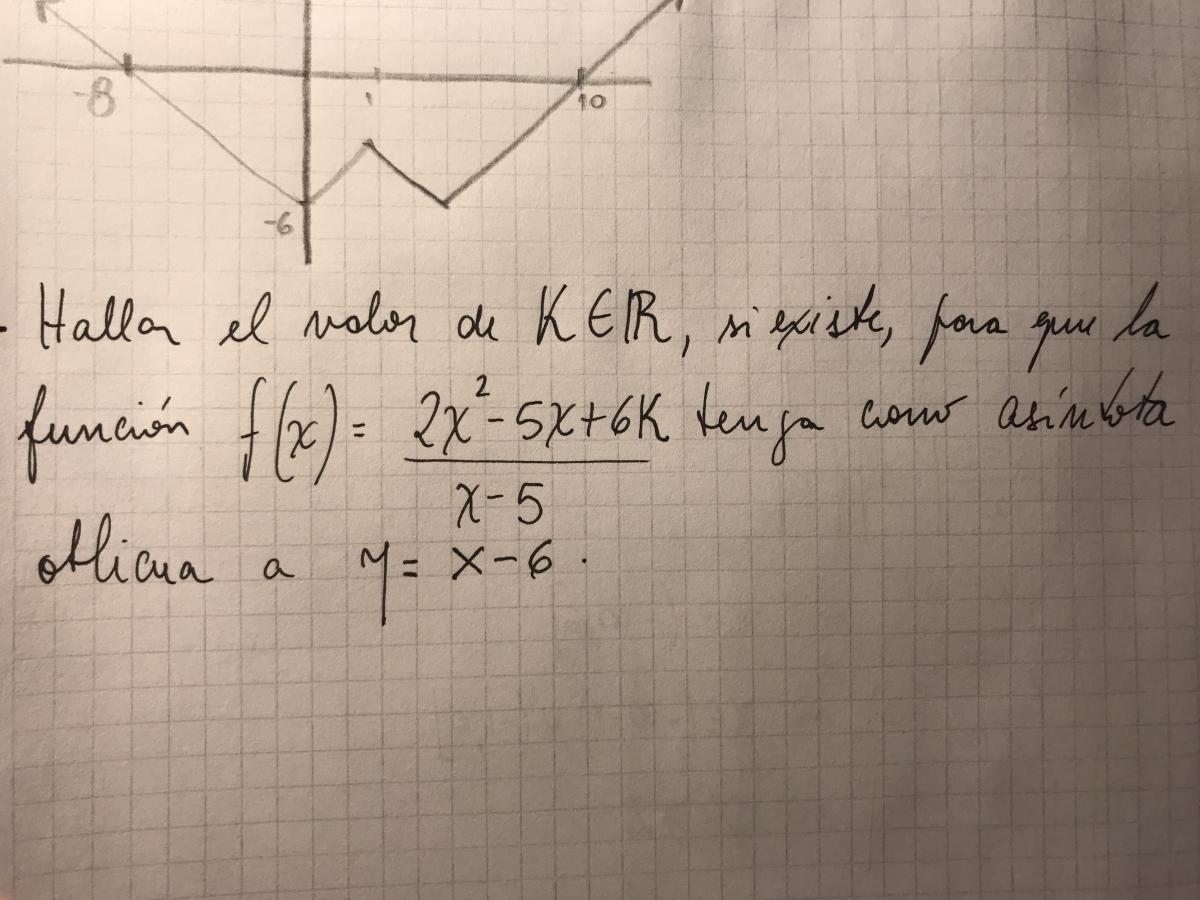 -8
1
10
-6
. Hallar el valor de K ∈ ℝ, si existe, para que la
función f(x) = (2x² - 5x + 6K) / (x - 5) tenga como asíntota
oblicua a y = x - 6.